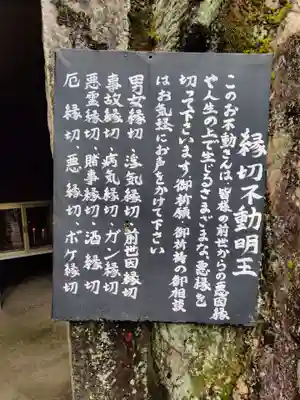 縁切不動明王
このお不動さんは、皆様の前世からの悪因縁
や人生の上で生じるさまざまな、悪縁を
切って下さいます。御祈願、御祈祷の御相談
はお気軽にお声をかけて下さい
男女縁切・浮気縁切・前世因縁切
事故縁切・病気縁切・ガン縁切
悪霊縁切・賭事縁切・酒縁切
厄縁切・悪縁切・ボケ縁切